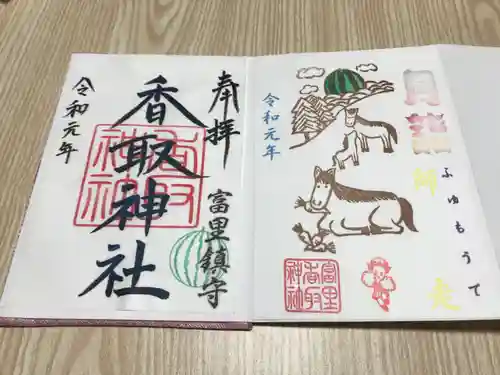 奉拝
富里鎮守
香取神社
香取
神社
令和元年
月詣
師走
ふゆもうで
令和元年
富里
香取
神社